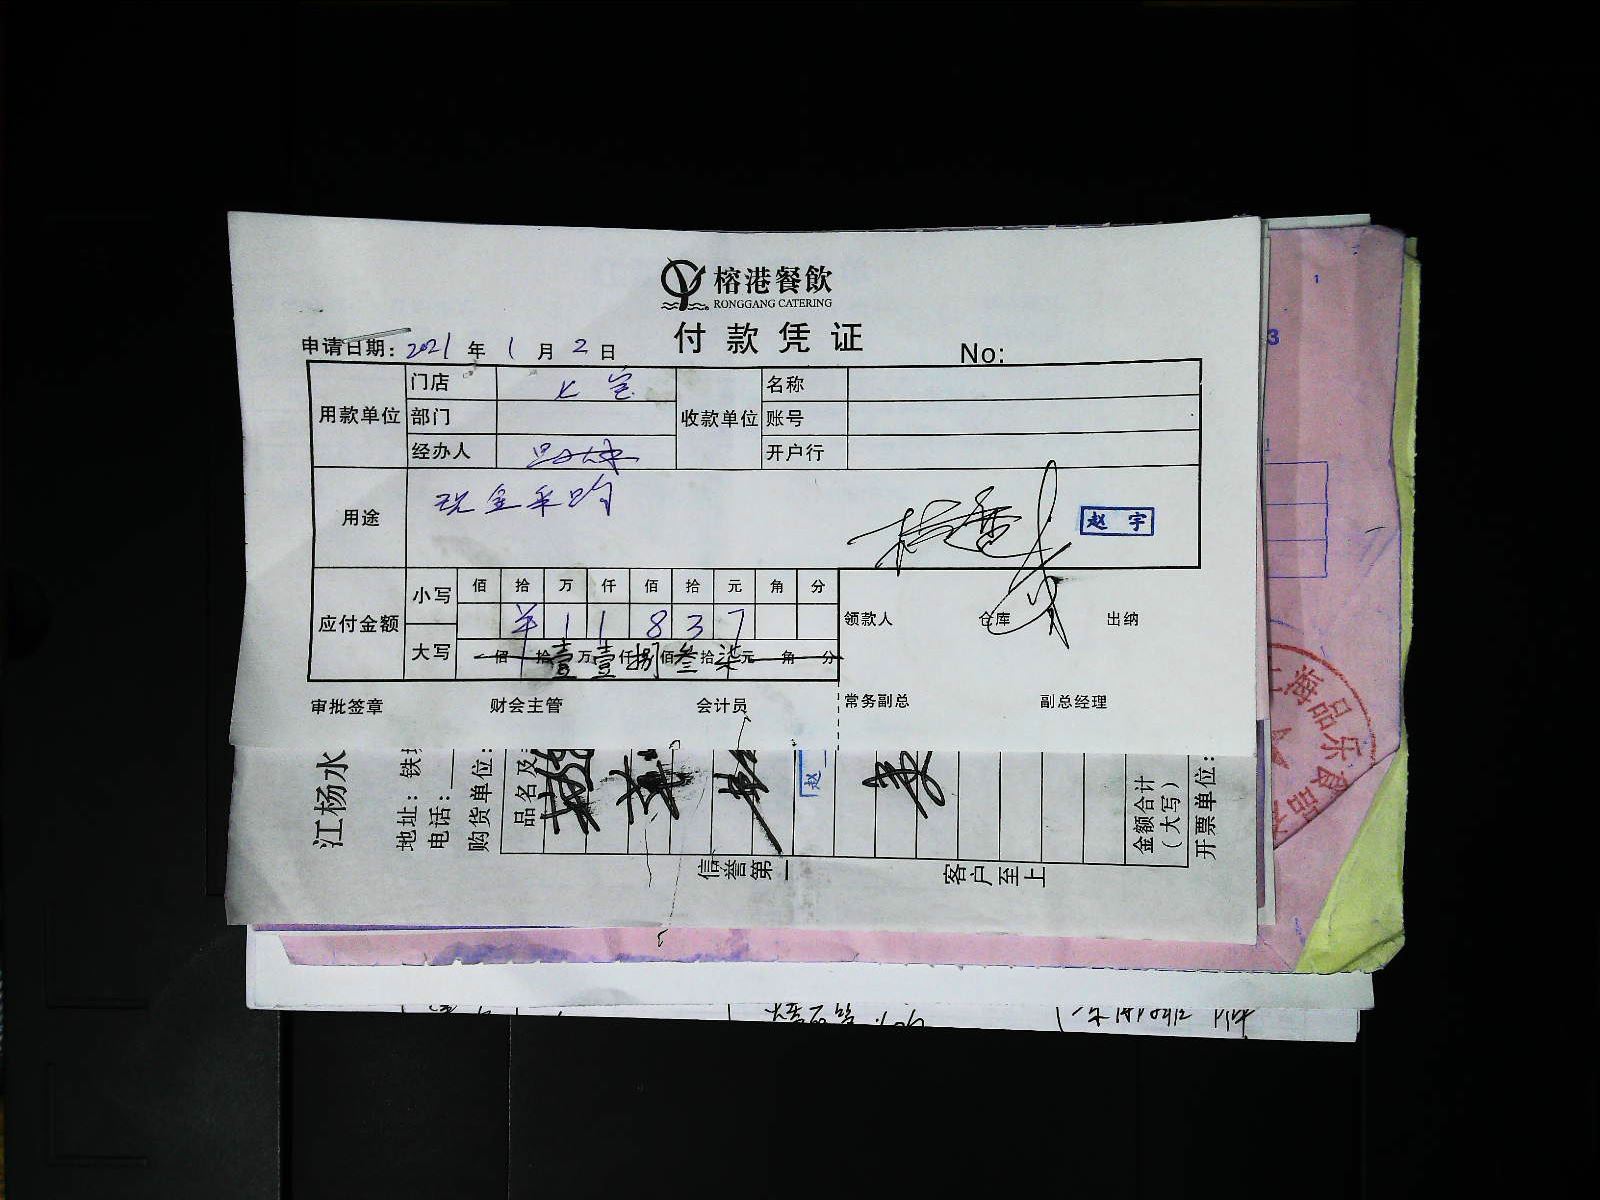 榕港餐飲
RONGGANG CATERING
付款凭证
申请日期: 2021 年 1 月 2 日
No:
用款单位 门店 长宝 收款单位 名称
部门 账号
经办人 开户行
用途 现金采购
赵宇
应付金额 小写 佰 拾 万 仟 佰 拾 元 角 分
羊 1 1 8 3 7
大写 佰 拾 壹 万 壹 仟 捌 佰 叁 拾 柒 元 角 分
领款人 仓库 出纳
审批签章 财会主管 会计员 常务副总 副总经理
江杨水
地址: 铁
电话:
购货单位:
品名及
赵
金额合计
(大写)
开票单位:
信誉第一 客户至上
上海品乐食品
3
1